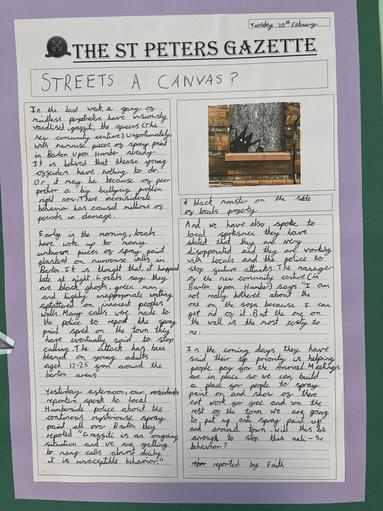 Tuesday 25th February
THE ST PETERS GAZETTE
STREETS A CANVAS?
In the last week a gang of
mindless perpetrators have viciously
vandilised, the queens (The
new community centre) Unfortunately
with numrous pieces of spray paint
in Barton upon Humber already.
It is belived that these young
offenders have nothing to do.
Or it may be because of peer
or a big bullying problem
right now. There inconsiderate
behavior has caused millions of
pounds in damage.
Early in the morning, locals
have woke up to many
unknown pieces of spray paint
plasterd on numerous walls in
Barton. It is thought that it happend
late at night. Locals say they
are black ghosts, green man
and highly inappropriate writing
splatterd on innocent peoples
walls. Many calls was made to
the police to report the spray
paint on the town they
have eventually said to stop
calling. The attack has been
blamed on young adults
aged 17-25 from around the
barton areas.
Yesterday afternoon our
reporters spoke to local
Humberside police about the
continuous mysterouse spray
paint all over Barton they
reported "Graffiti is an ongoing
situation and we are getting
to many calls almost daily
it is unaceptible behavior."
A black monster on the side
of locals property.
And we have also spoke to
local spokesmen they have
stated that they are very
disapponted and they are working
with locals and the police to
stop future attacks. The manager
of the new community centre (in
Barton upon Humber) says "I am
not really bothered about the
one on the because I can
get rid of it. But the one on
the wall is the most costly to
In the coming days, they have
said their top priority is helping
people pay for the removal. Meetings
are in place so we can build
a place for people to spray
paint on and show of there
art work for free and on the
rest of the town we are going
to put up anti spray paint up
and around town. Will this be
enough to stop this anti-so
behavior?
reported by Faith